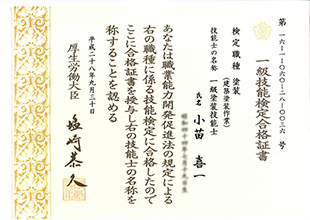 第 一六-一-一〇六〇-二八-〇〇三六 号
一級技能検定合格証書
検定職種 塗装
(建築塗装作業)
技能士の名称 一級塗装技能士
氏名 小苗 喜一
昭和四十四年七月十九日生
あなたは職業能力開発促進法の規定による
右の職種に係る技能検定に合格したので
ここに合格証書を授与し右の技能士の名称を
称することを認める
平成二十八年九月三十日
厚生労働大臣
塩崎恭久